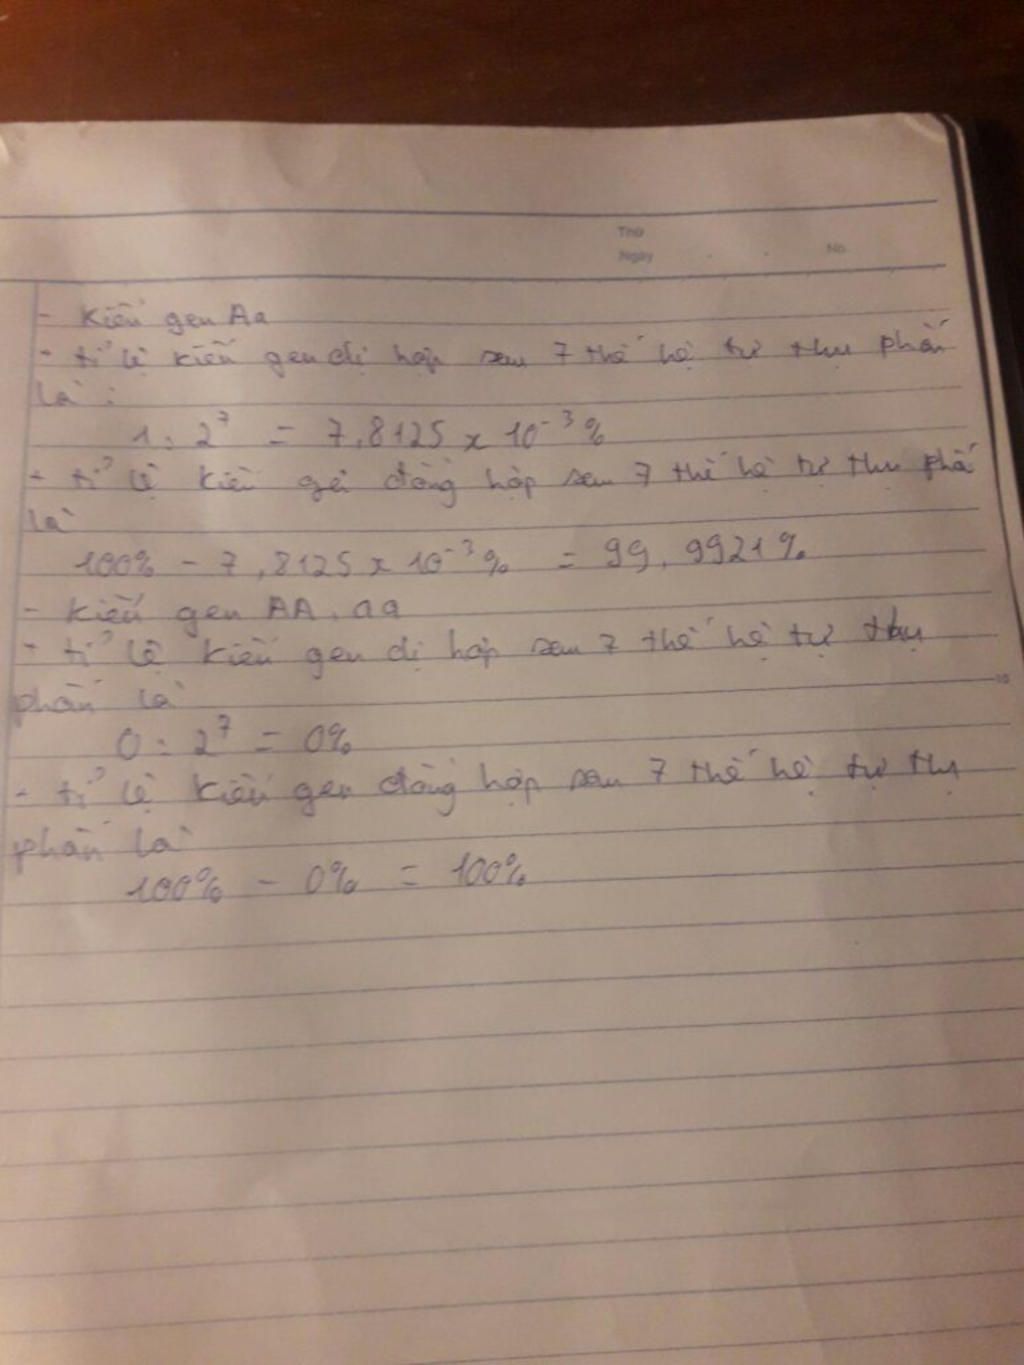 Thứ
Ngày No.
- Kiểu gen Aa
- tỉ lệ kiểu gen dị hợp sau 7 thế hệ tự thụ phấn
là :
1 : 2⁷ = 7,8125 x 10⁻³ %
- tỉ lệ kiểu gen đồng hợp sau 7 thế hệ tự thụ phấ
là
100% - 7,8125 x 10⁻³ % = 99,9921 %
- Kiểu gen AA, aa
- tỉ lệ kiểu gen dị hợp sau 7 thế hệ tự thụ
phấn là
0 : 2⁷ = 0%
- tỉ lệ kiểu gen đồng hợp sau 7 thế hệ tự thụ
phấn là
100% - 0% = 100%
10